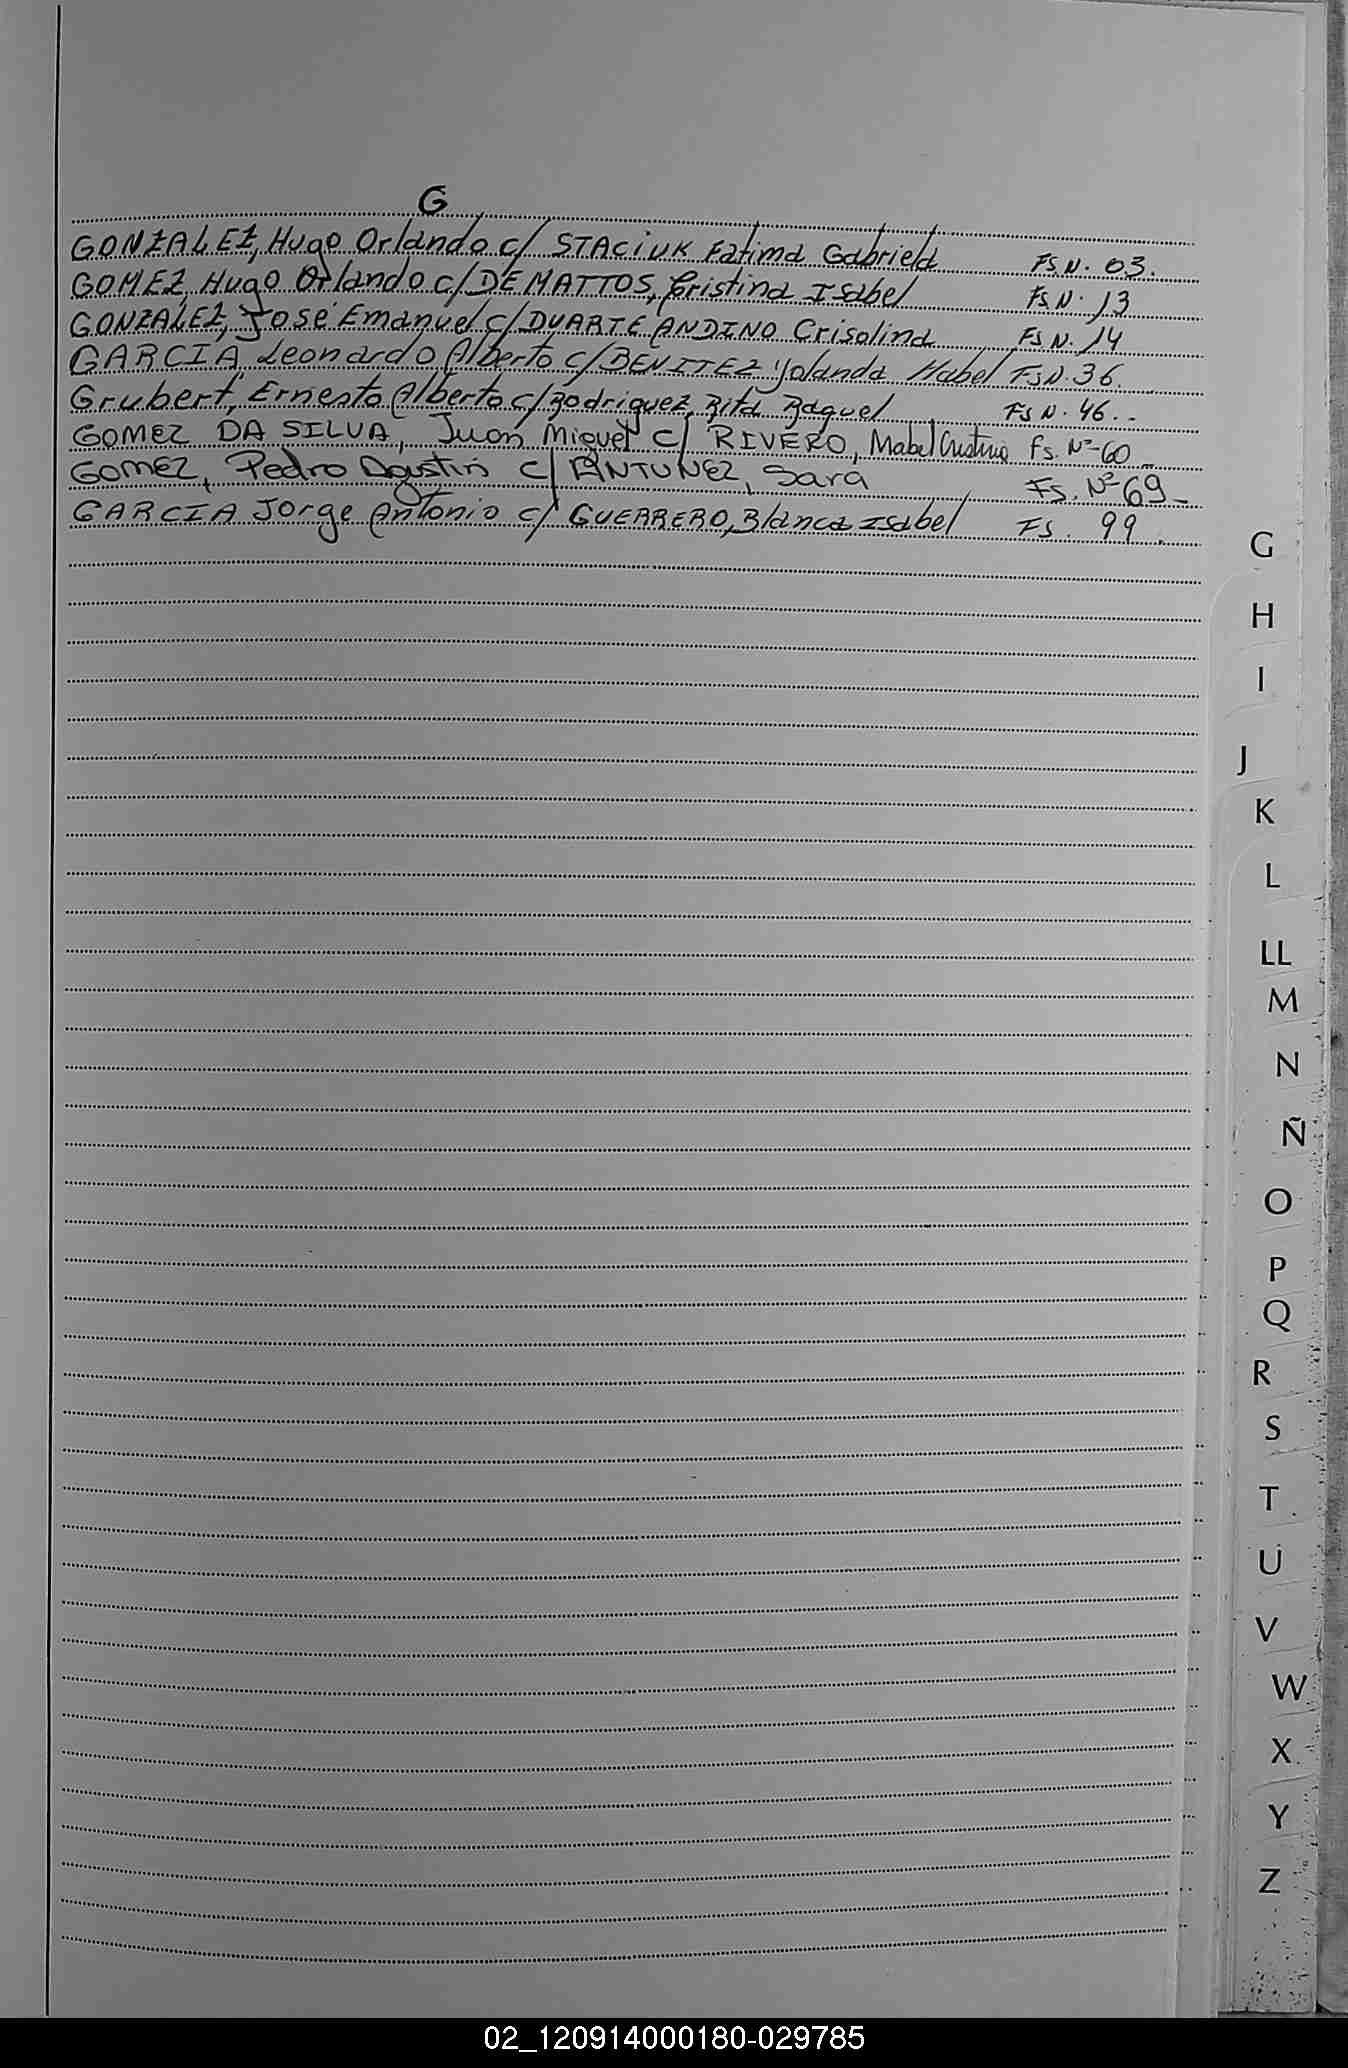 G
GONZALEZ, Hugo Orlando c/ STACiUK Fatima Gabriela FS N. 03.
GOMEZ, Hugo Orlando c/ DE MATTOS, Cristina Isabel FS N. 13
GONZALEZ, José Emanuel c/ DUARTE ANDINO Crisolina FS N. 14
GARCIA, Leonardo Alberto c/ BENITEZ Yolanda Mabel FS N. 36.
Grubert, Ernesto Alberto c/ Rodriguez, Rita Raquel FS N. 46.-
GOMEZ DA SILVA, Juan Miguel c/ RIVERO, Mabel Cristina Fs. Nº 60-
GOMEZ, Pedro Agustin c/ ANTUNEZ, Sara FS. Nº 69-
GARCIA Jorge Antonio c/ GUERRERO, Blanca Isabel FS. 99.
G
H
I
J
K
L
LL
M
N
Ñ
O
P
Q
R
S
T
U
V
W
X
Y
Z
02_120914000180-029785